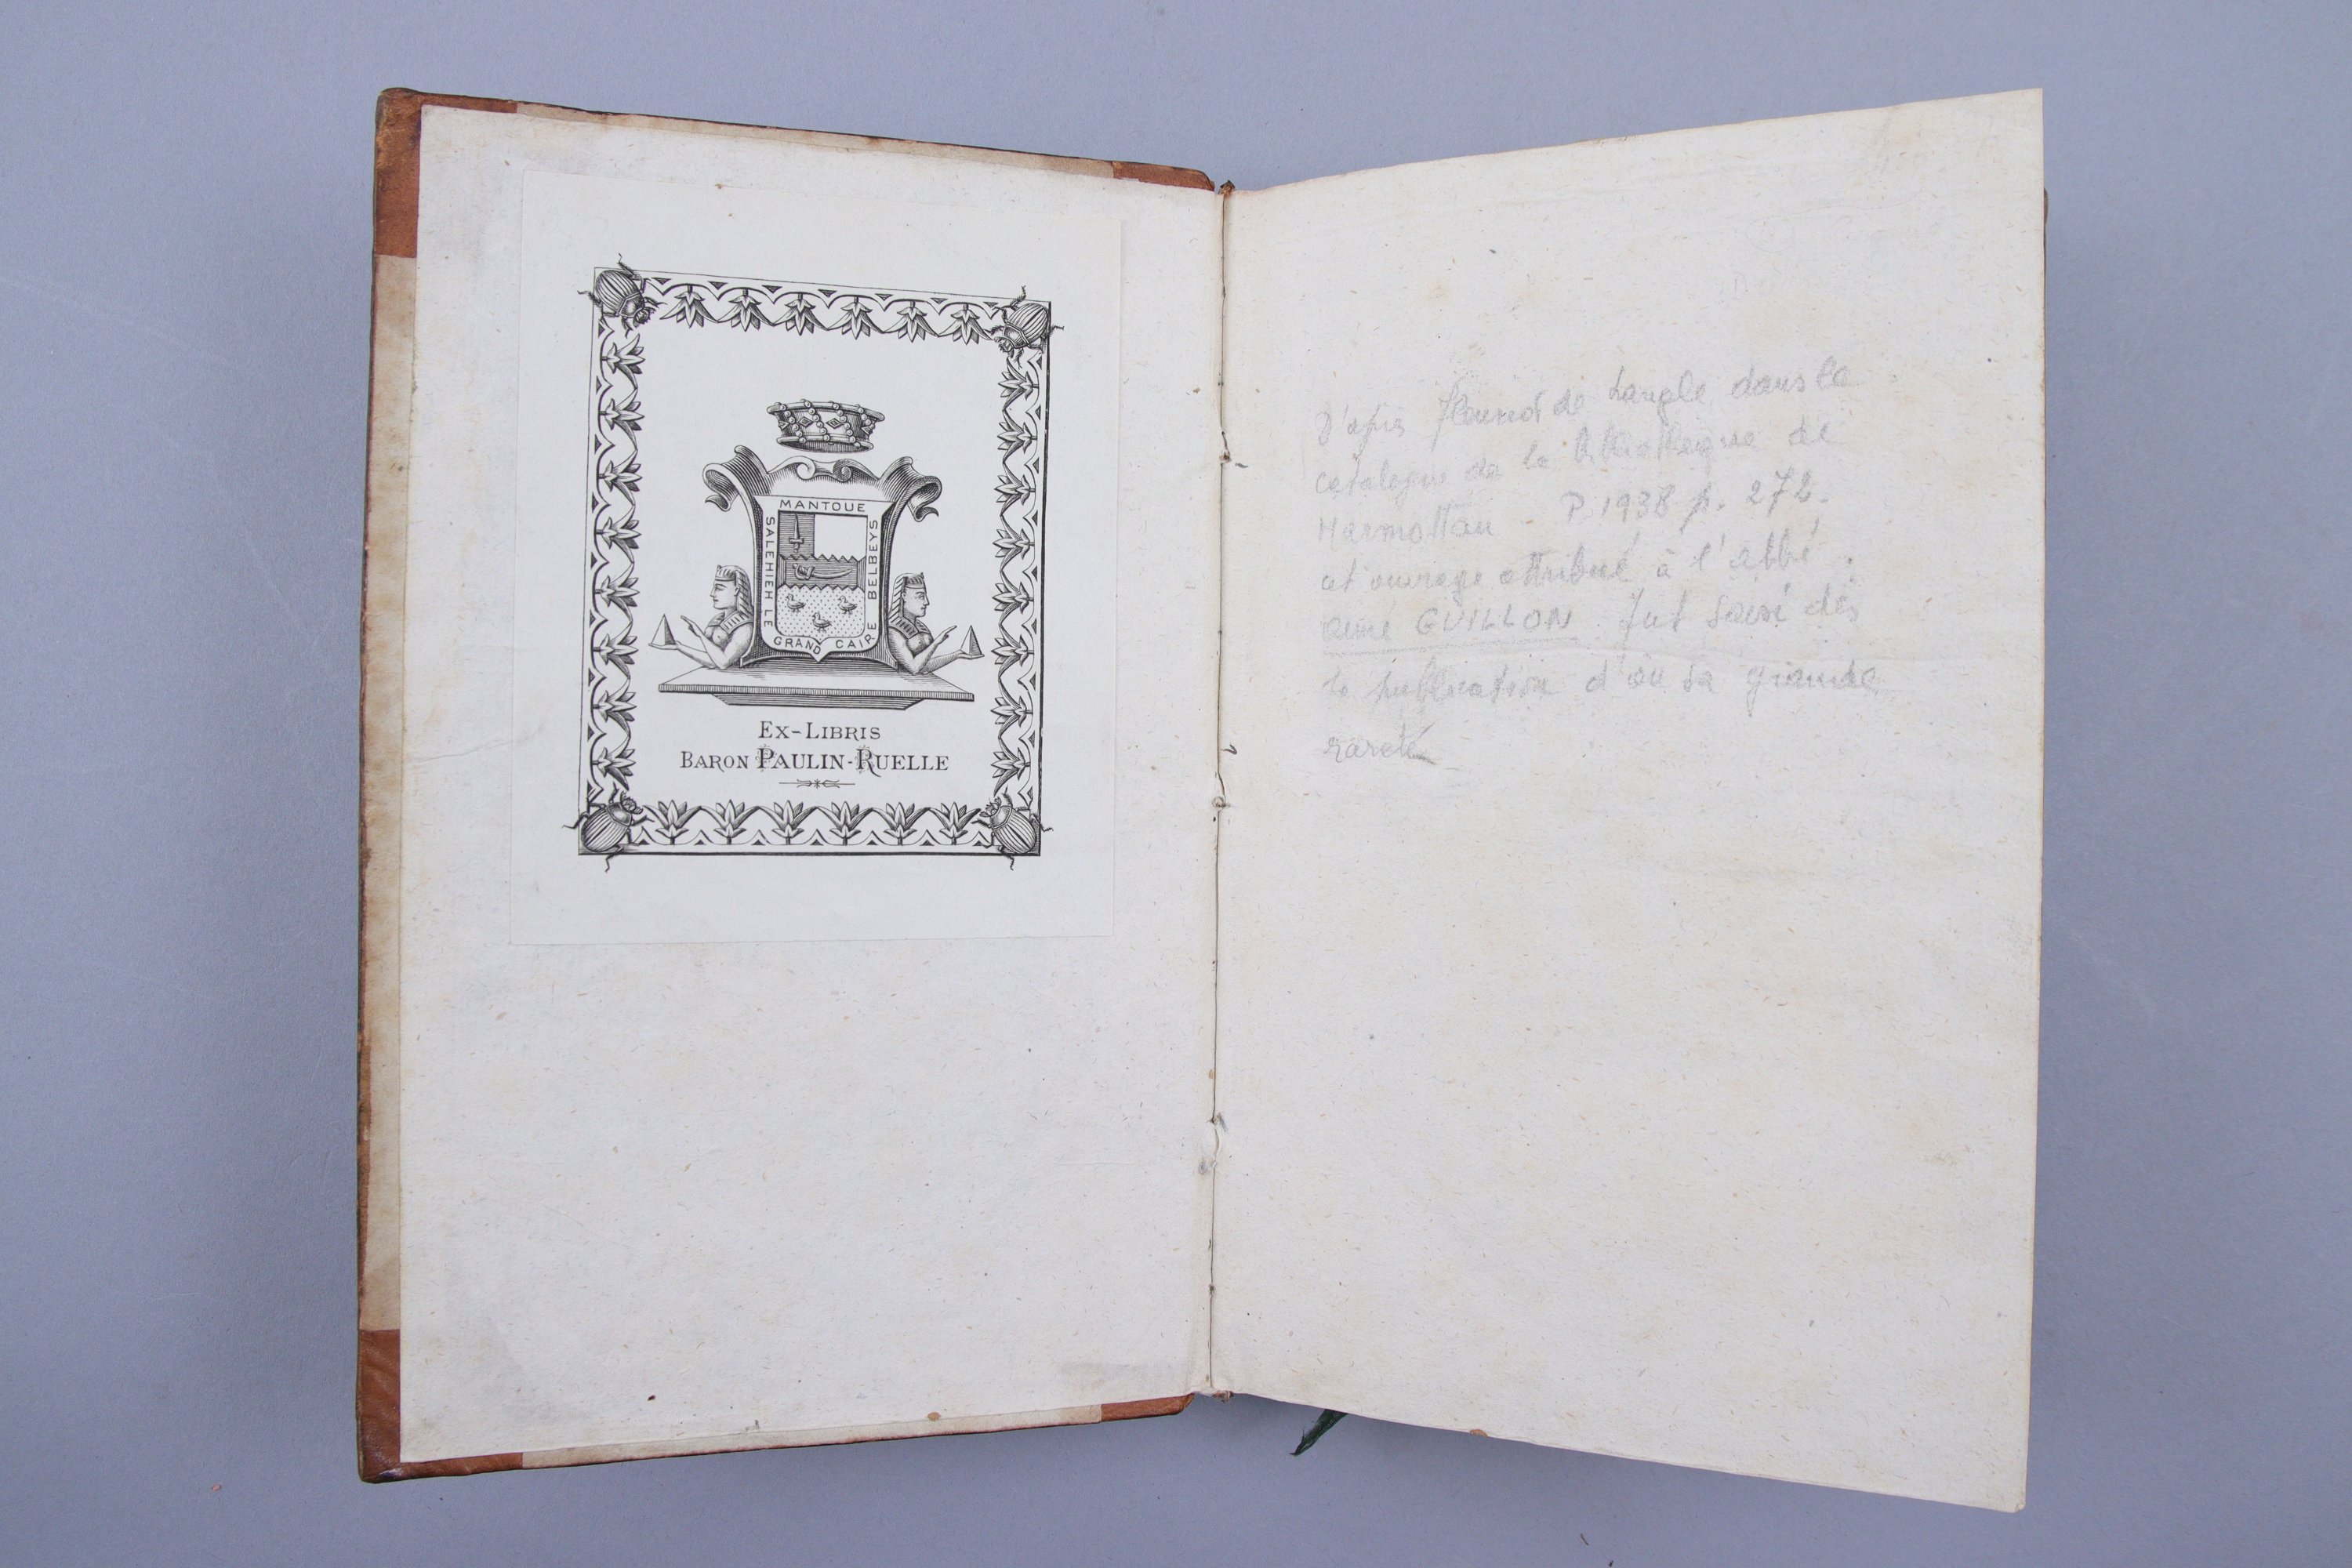 MANTOUE
SALEHIEH LE GRAND CAIRE BELBEYS
EX-LIBRIS
BARON PAULIN-RUELLE
D'après Fleuriot de Langle dans le
catalogue de la bibliothèque de
Marmottan P. 1938 p. 272.
cet ouvrage attribué à l'abbé
aimé GUILLON fut saisi dès
la publication d'où sa grande
rareté